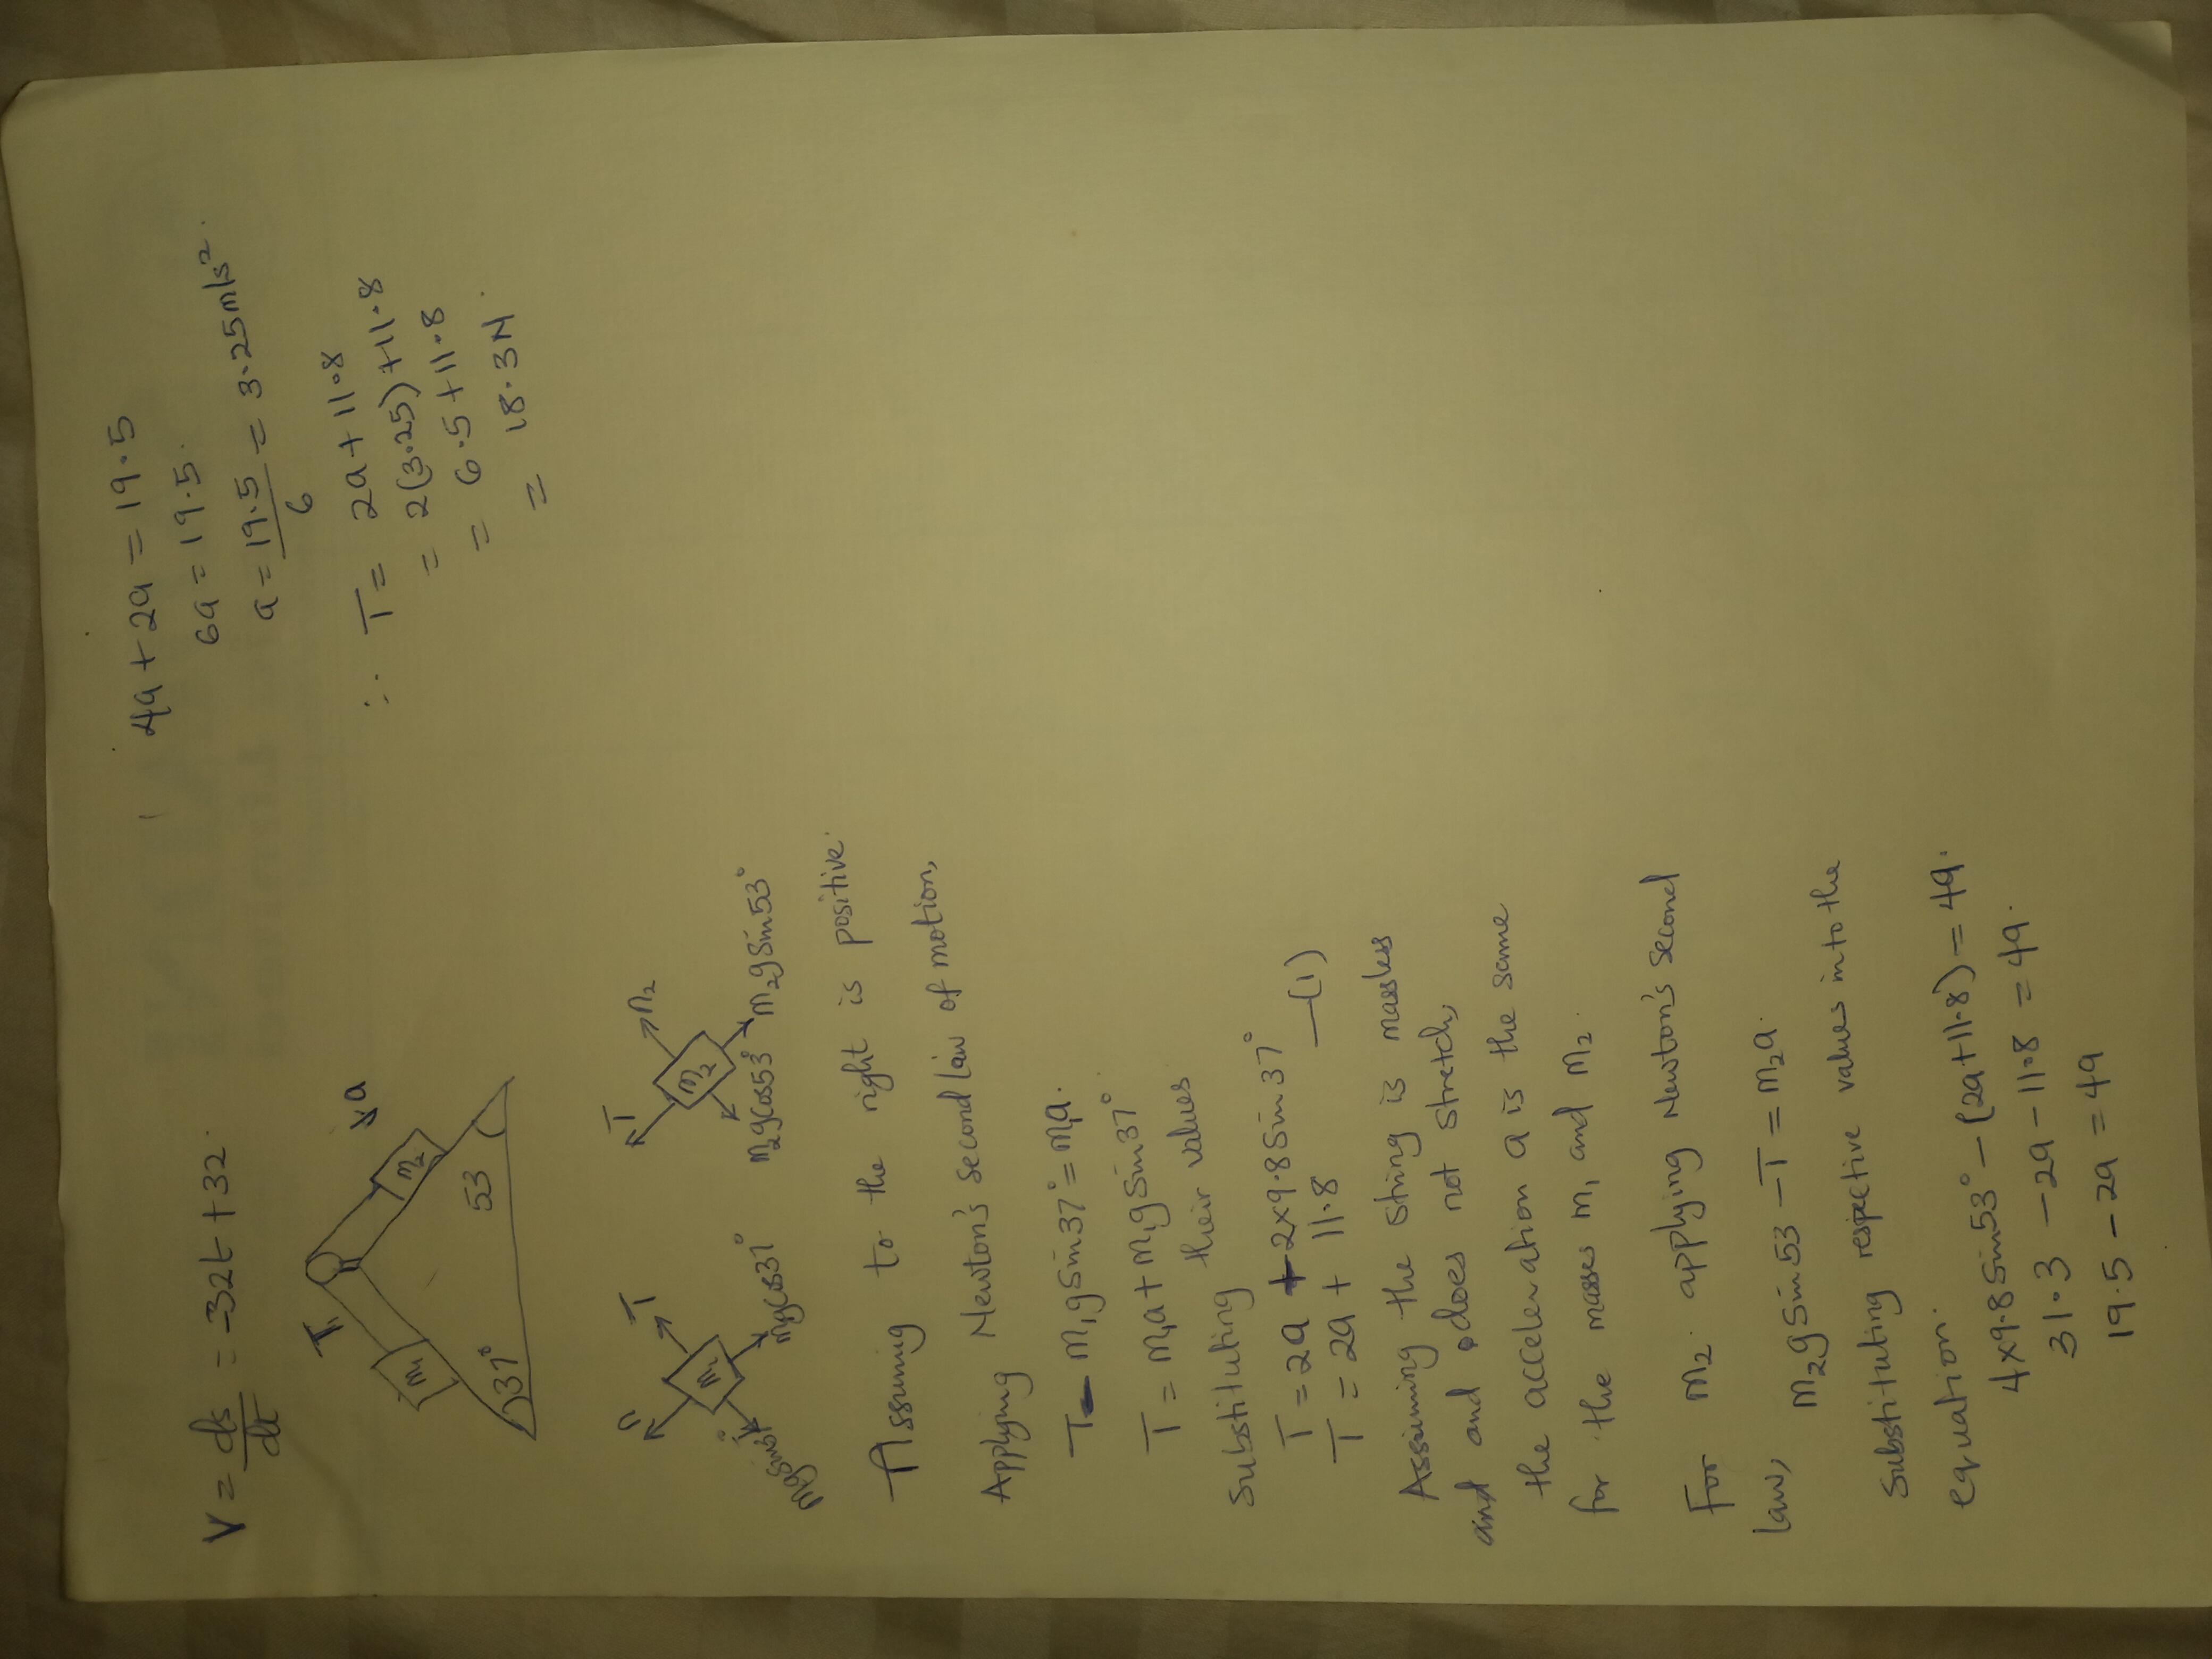 V = ds/dt = -32t + 32.
T
a
m1
m2
37°
53
n
T
m1
mgsin37°
m1gcos37°
T
n2
m2
m2gcos53°
m2gSin53°
Assuming to the right is positive.
Applying Newton's second law of motion,
T - m1gSin37° = m1a.
T = m1a + m1gSin37°
Substituting their values
T = 2a + 2x9.8Sin37°
T = 2a + 11.8 —(1)
Assuming the string is massless
and and does not stretch,
the acceleration a is the same
for the masses m1 and m2.
For m2. applying Newton's second
law, m2gSin53 - T = m2a.
Substituting respective values into the
equation.
4x9.8Sin53° - (2a+11.8) = 4a.
31.3 - 2a - 11.8 = 4a.
19.5 - 2a = 4a
4a + 2a = 19.5
6a = 19.5.
a = 19.5/6 = 3.25m/s².
∴ T = 2a + 11.8
= 2(3.25) + 11.8
= 6.5 + 11.8
= 18.3N.